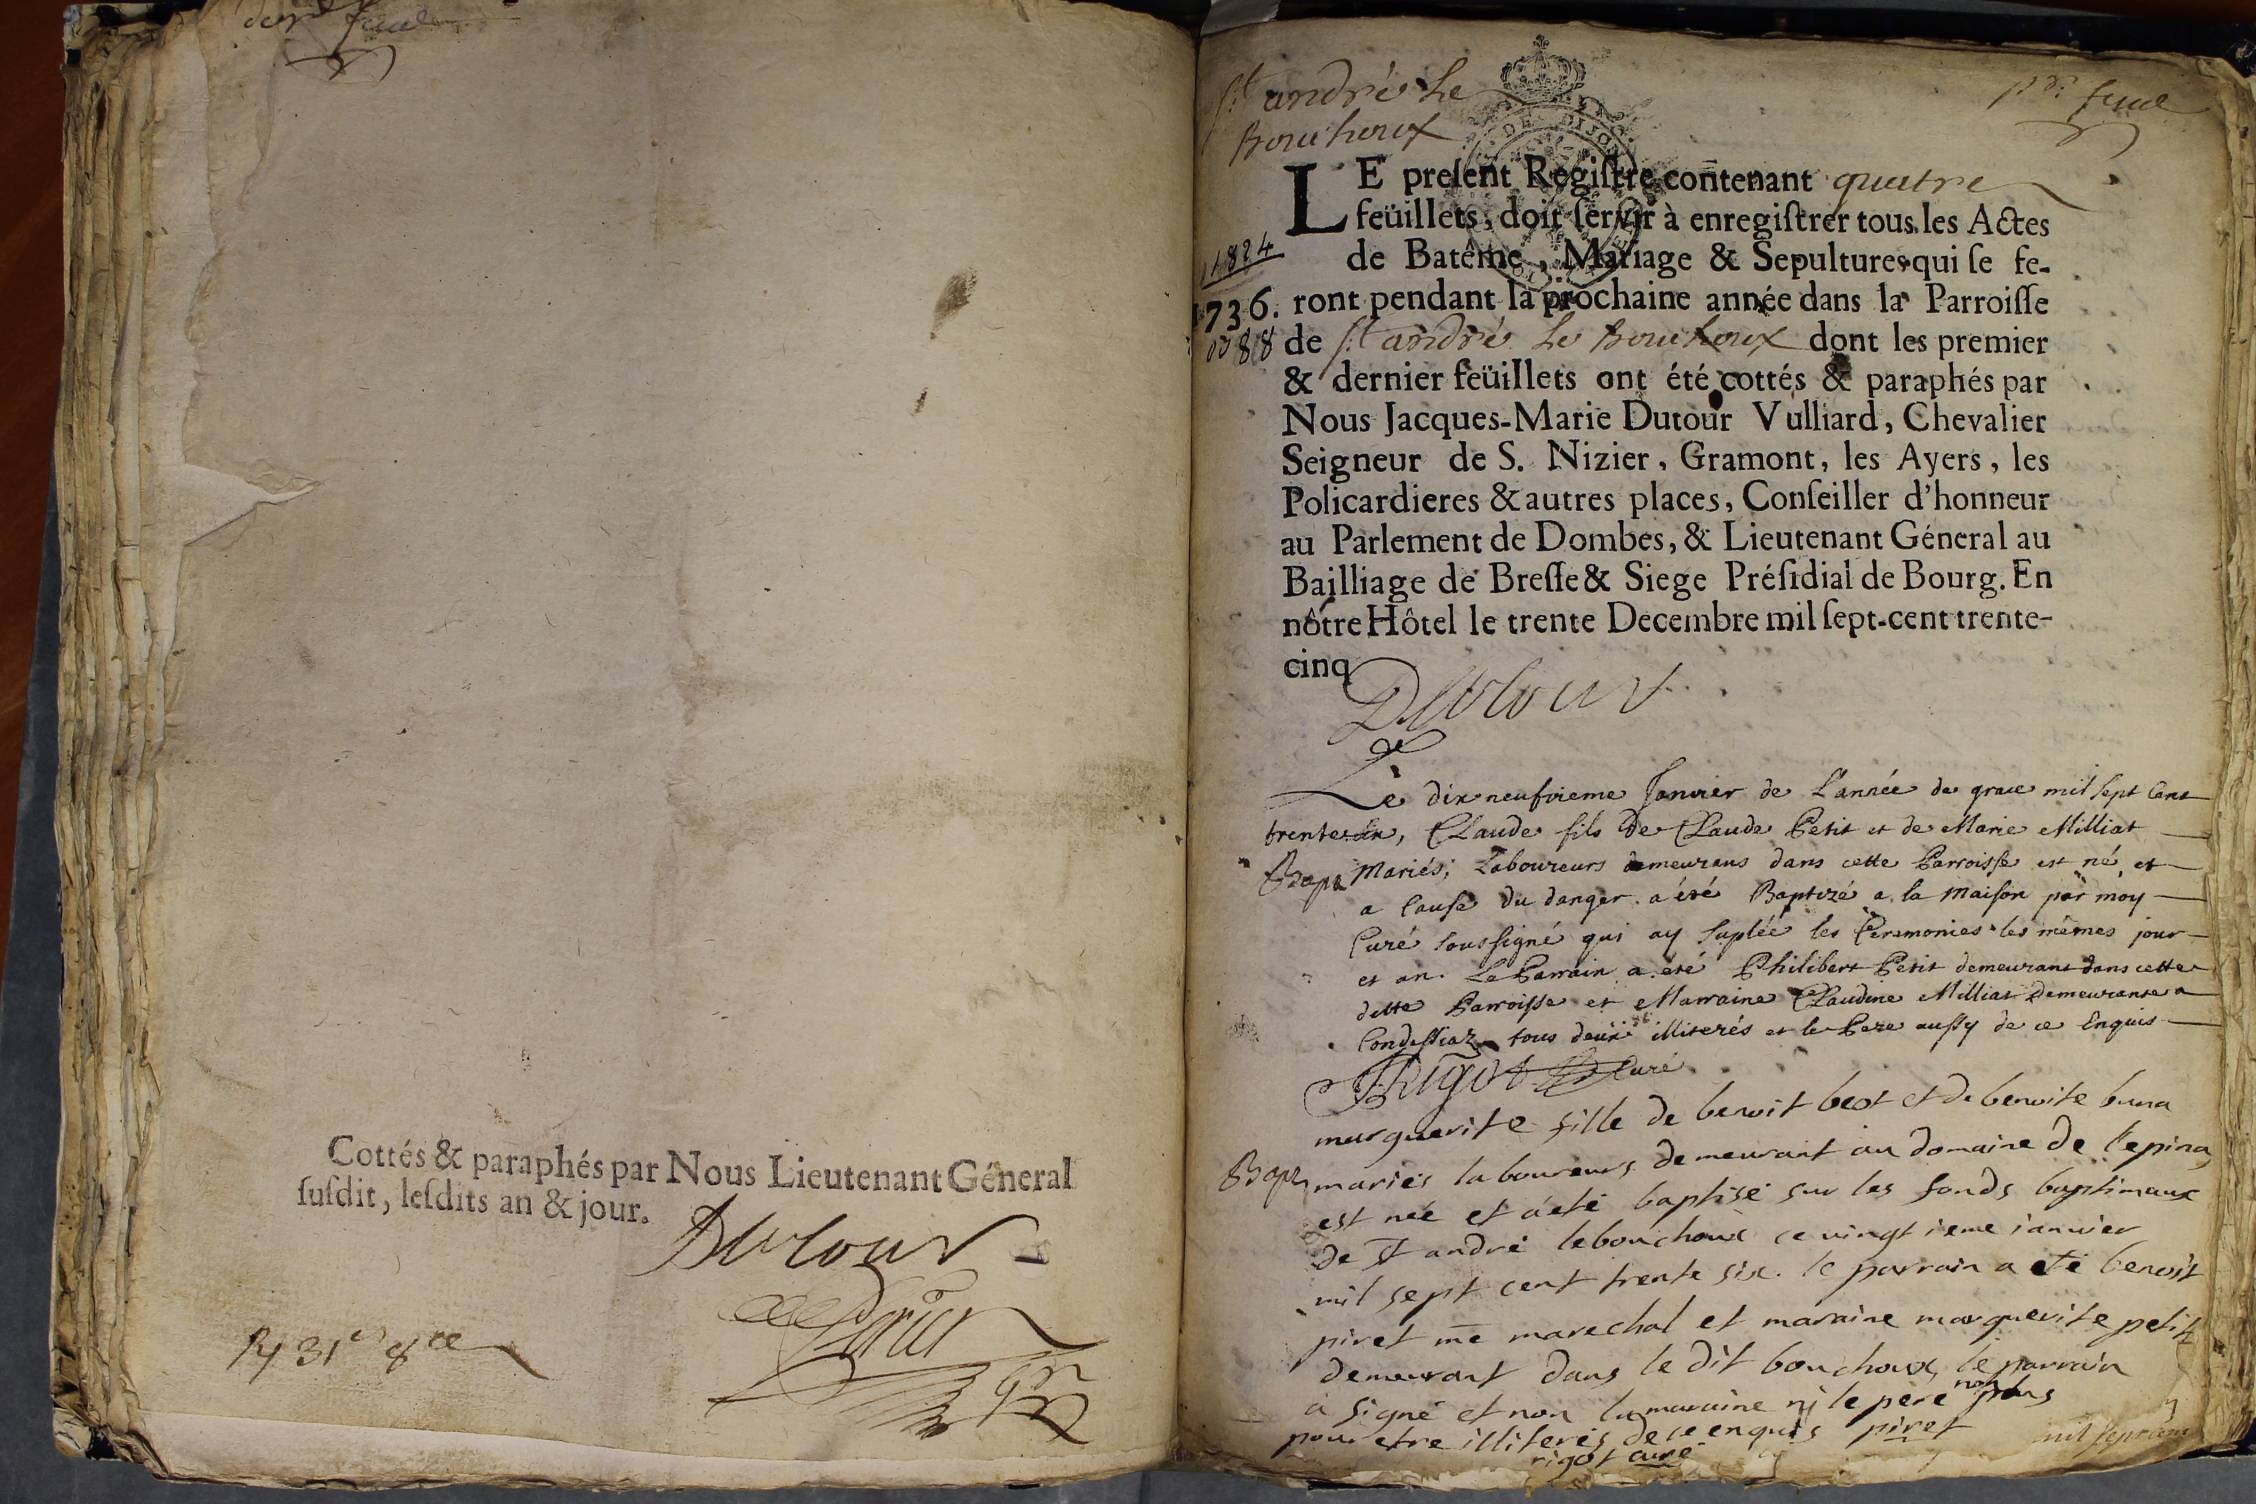 feuil
Cottés & paraphés par Nous Lieutenant Géneral
ſuſdit, leſdits an & jour.
Dutour
St andré Le
Bouchoux
pr feuil
DE DIJON
LE preſent Regiſtre contenant quatre
feüillets, doit ſervir à enregiſtrer tous les Actes
de Batême, Mariage & Sepultures qui ſe fe-
ront pendant la prochaine année dans la Parroiſſe
de St andré Le Bouchoux dont les premier
& dernier feüillets ont été cottés & paraphés par
Nous Jacques-Marie Dutour Vulliard, Chevalier
Seigneur de S. Nizier, Gramont, les Ayers, les
Policardieres & autres places, Conſeiller d'honneur
au Parlement de Dombes, & Lieutenant Géneral au
Bailliage de Breſſe & Siege Préſidial de Bourg. En
nôtre Hôtel le trente Decembre mil ſept-cent trente-
cinq
1824
1736.
88
Dutour
Le dix neufvieme Janvier de L'année de grace mil sept Cent
trente six, Claude fils de Claude Petit et de Marie Milliat
Bapt Mariés; Laboureurs demeurans dans cette Parroisse est né, et
a Cause du danger a été Baptizé a la Maison par moy
Curé soussigné qui ay suplée les Ceremonies les mêmes jour
et an. Le Parrain a été Philibert Petit demeurant dans cette
ditte Parroisse et Marraine Claudine Milliat demeurante a
Condessiaz tous deux illiterés et le Pere aussy de ce Enquis
Rigot Curé
marguerite fille de benoit beot et de benoite buna
Bapt mariés laboureurs demeurant au domaine de l'epina
est née et a été baptisé sur les fonds baptimaux
de St andré lebouchoux ce vingt ieme ianvier
mil sept cent trente six. le parrain a eté benoit
piret me marechal et maraine marguerite petit
demeurant dans le dit bouchoux, le parrain
a signé et non la maraine nj le pere non plus
pour etre illiterés de ce enquis piret
rigot curé
mil sept cent